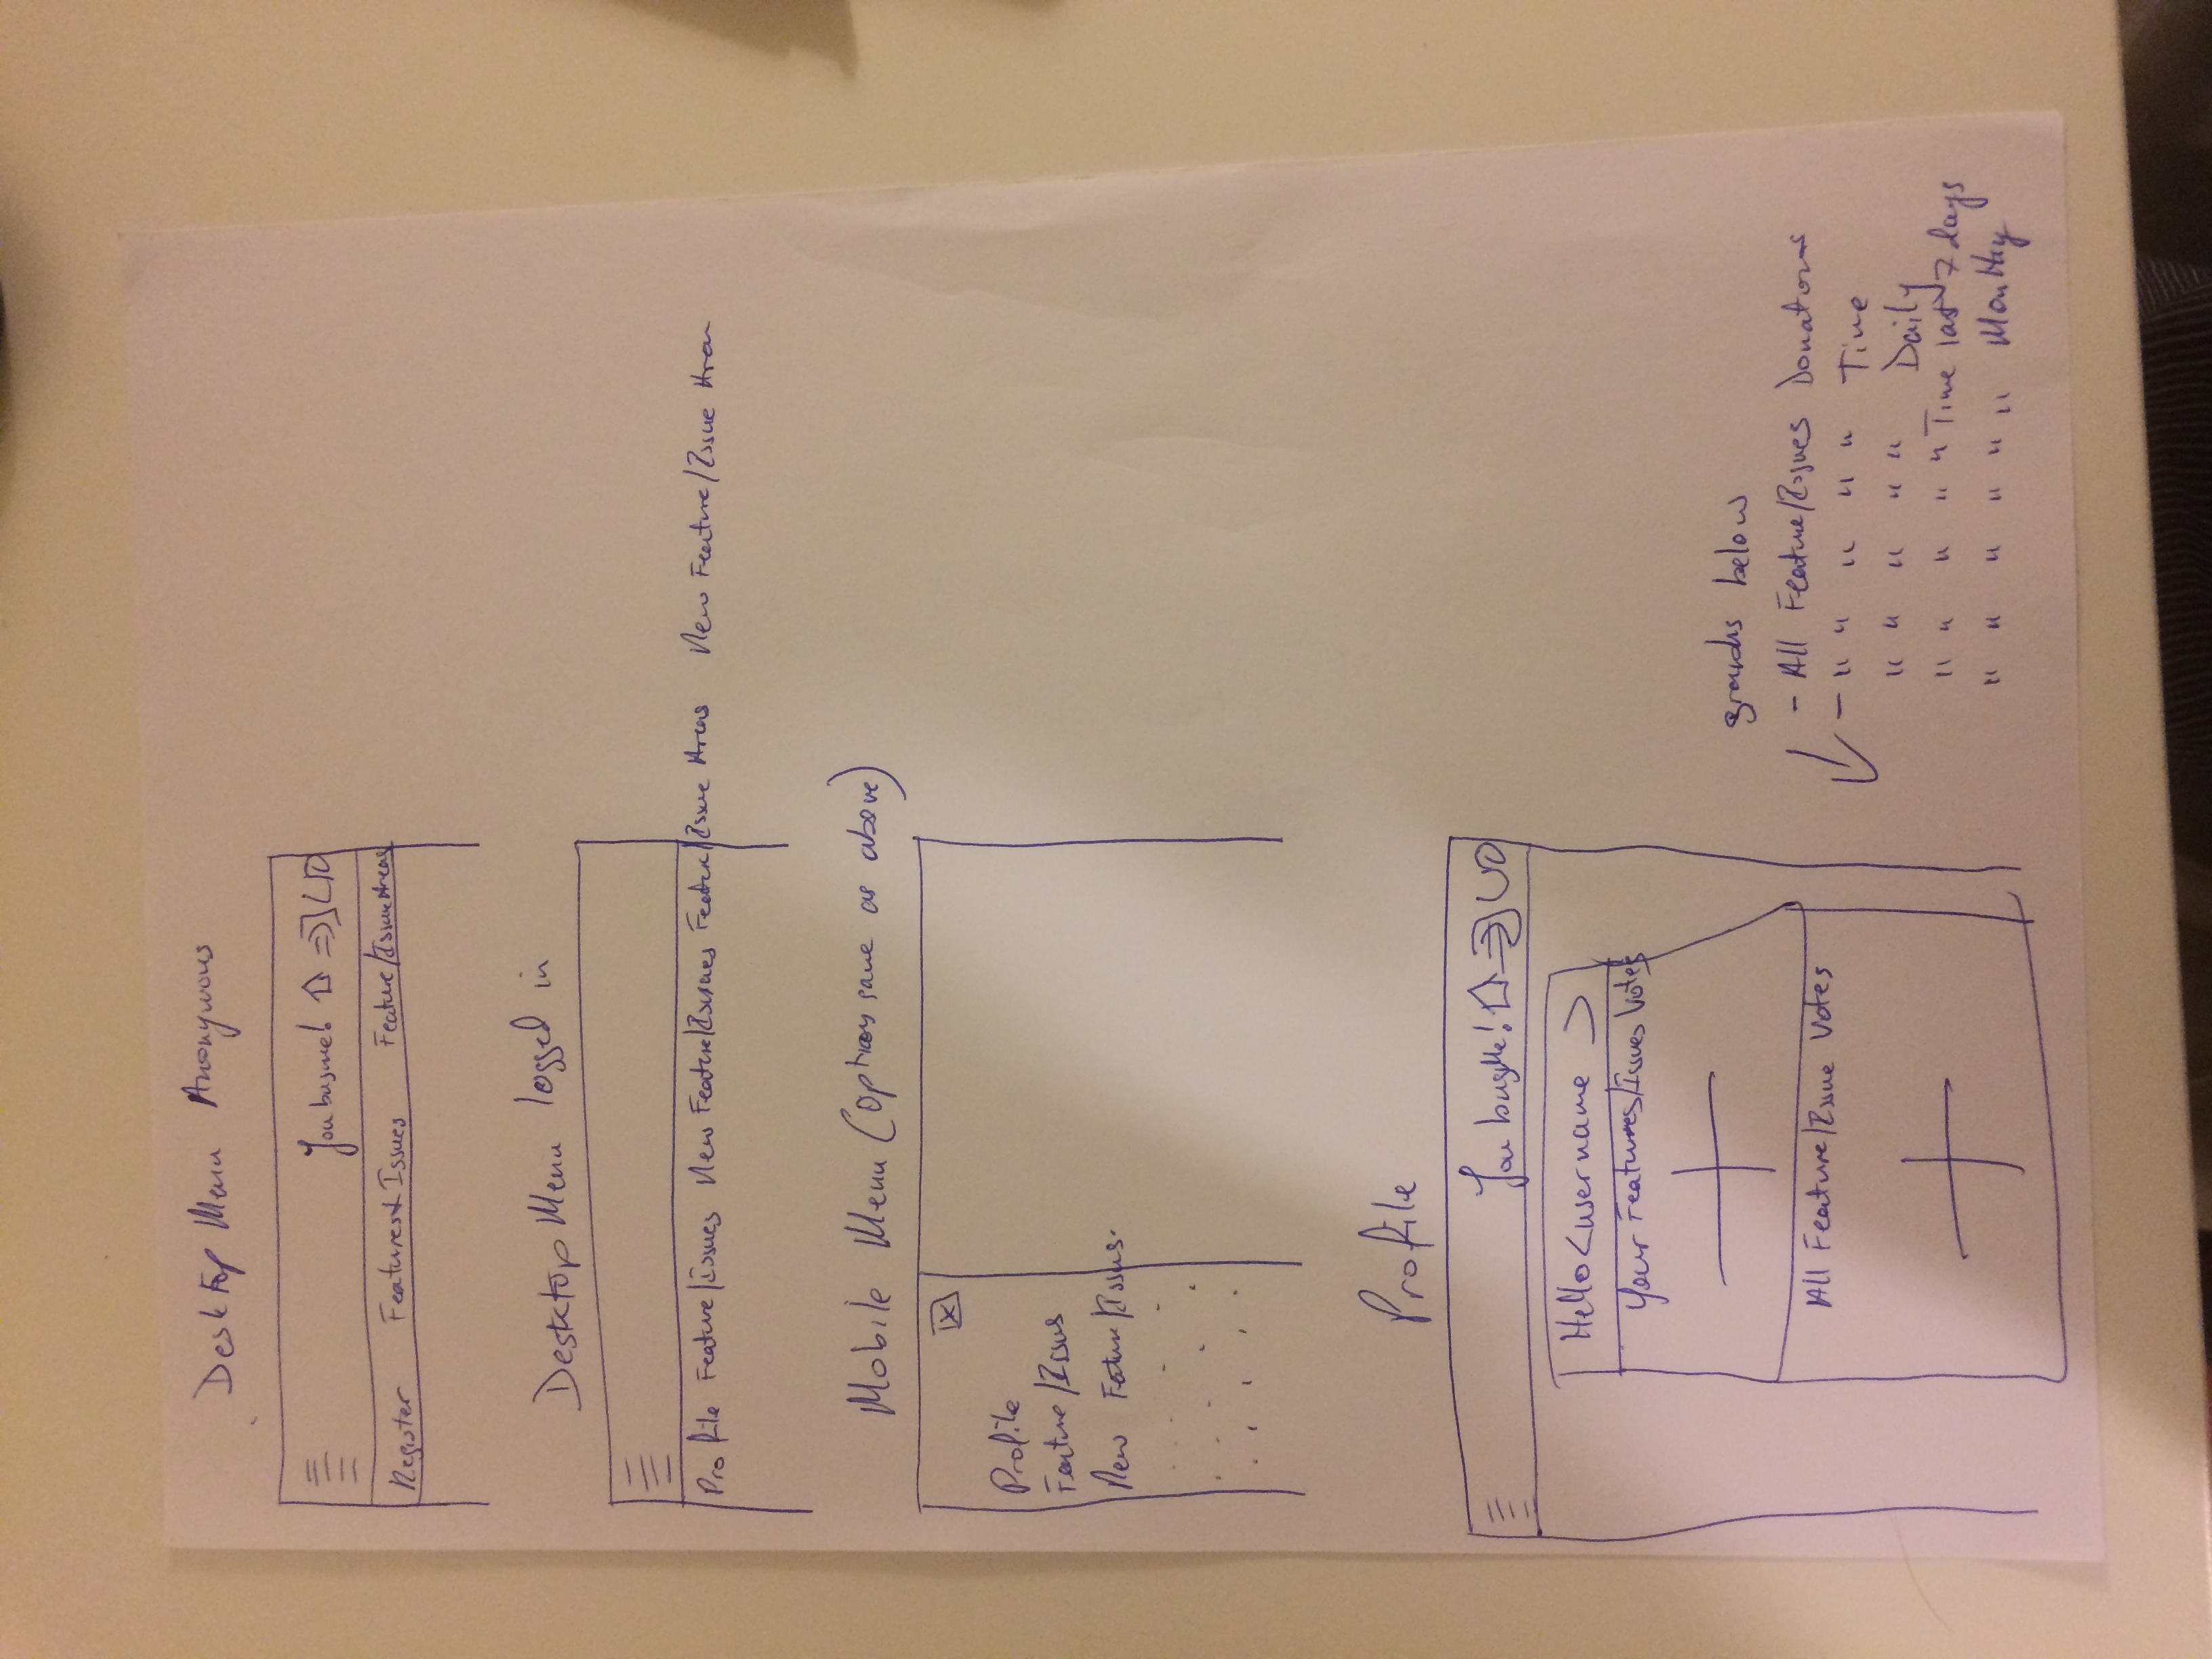 Desktop Menu Anonymous
You bug me!
Register Features & Issues Feature/Issue Areas
Desktop Menu logged in
Profile Feature/Issues New Feature/Issues Feature/Issue Areas New Feature/Issue Area
Mobile Menu (options same as above)
X
Profile
Feature/Issus
New Feature/Issus.
Profile
You bug Me!
Hello <username >
Your Features/Issues Votes
All Feature/Issue Votes
graphs below
- All Feature/Issues Donations
- " " " " " Time
" " " " " Daily
" " " " " Time last 7 days
" " " " " " Monthly